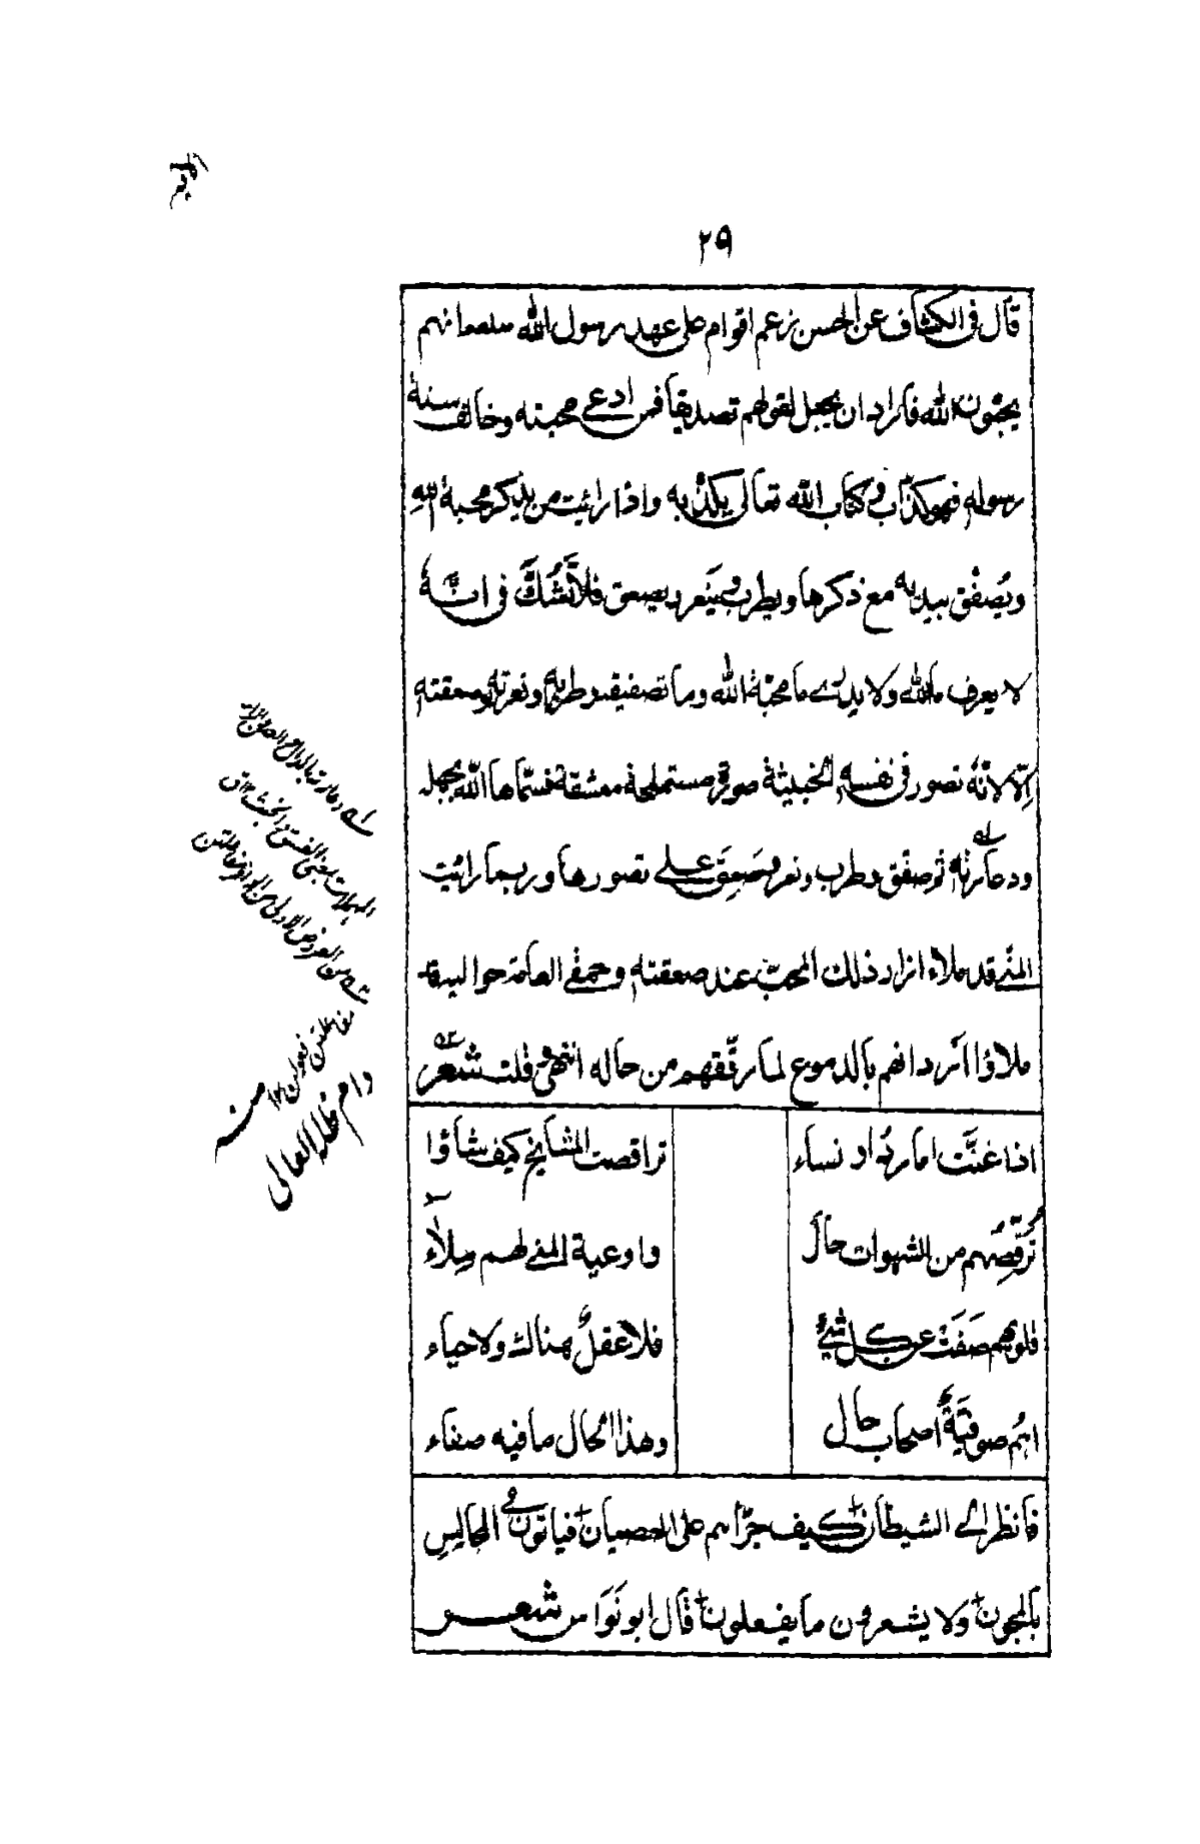 ٢٩
قال فى الكشاف عن الحسن زعم اقوام على عهد رسول الله صلعم انهم
يحبّون الله فاراد ان يجعل لقولهم تصديقاً فمن ادعى محبته وخالف سنة
رسوله فهو كذّاب وكتاب الله تعالى يكذّبه واذا رايت من يذكر محبة الله
ويُصفّق بيديه مع ذكرها ويطرب وينعر ويصعق فلا تَشُكَّ فى انّهٗ
لا يعرف ما الله ولا يدرى ما محبّة الله وما تصفيقه وطربه ونعرته وصعقته
الّا لانّهٗ تصور فى نفسه الخبيثة صورة مستملحة معشقة فسمّاها الله بجهله
ودعارته ثم صفق وطرب ونعر وصَعِقَ على تصورها وربما رايت
المنى قد ملاء ازار ذلك المحبّ عند صعقته وحمقى العامة حواليه قد
ملاؤا اردانهم بالدموع لما رقّقهم من حاله انتهى قلت شعر
اذا غنَّت اماردُ او نساء
تراقصت المشايخ كيف شاؤا
تُرقّصُهم من الشهوات حالٌ
واوعية المنى لهم مِلاَء
قلوبهم صَفَتْ عن كل شيءٍ
فلا عقلٌ هناك ولا حياء
اهُم صوفيّةٌ اصحاب حال
وهذا الحال ما فيه صفاء
فانظر الى الشيطان كيف جرّأهم على العصيان فياتون فى المجالس
بالمجون ولا يشعرون ما يفعلون قال ابو نَوَاس شعر
دام ظله العالى
منه